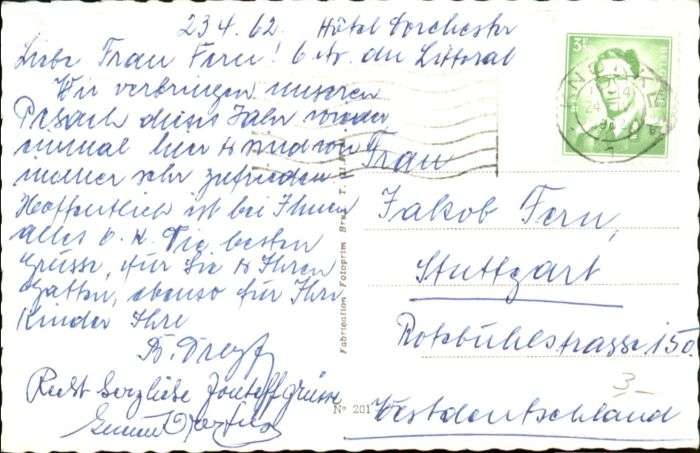 23 4. 62. Hôtel Dorchester
Liebe Frau Fern! 6 Av. du Littoral
Wir verbringen unseren
Pesach dieses Jahr wieder
einmal hier & sind wie
immer sehr zufrieden -
Hoffentlich ist bei Ihnen
alles o. k. Die besten
Grüsse, für Sie & Ihren
Gatten, ebenso für Ihre
Kinder Ihre
Recht herzliche Jonteffgrüsse
Frau
Jakob Fern,
Stuttgart
Rotebühlstrasse 150
Westdeutschland
3-
Nº 201
Fabrication Fotoprim
3F